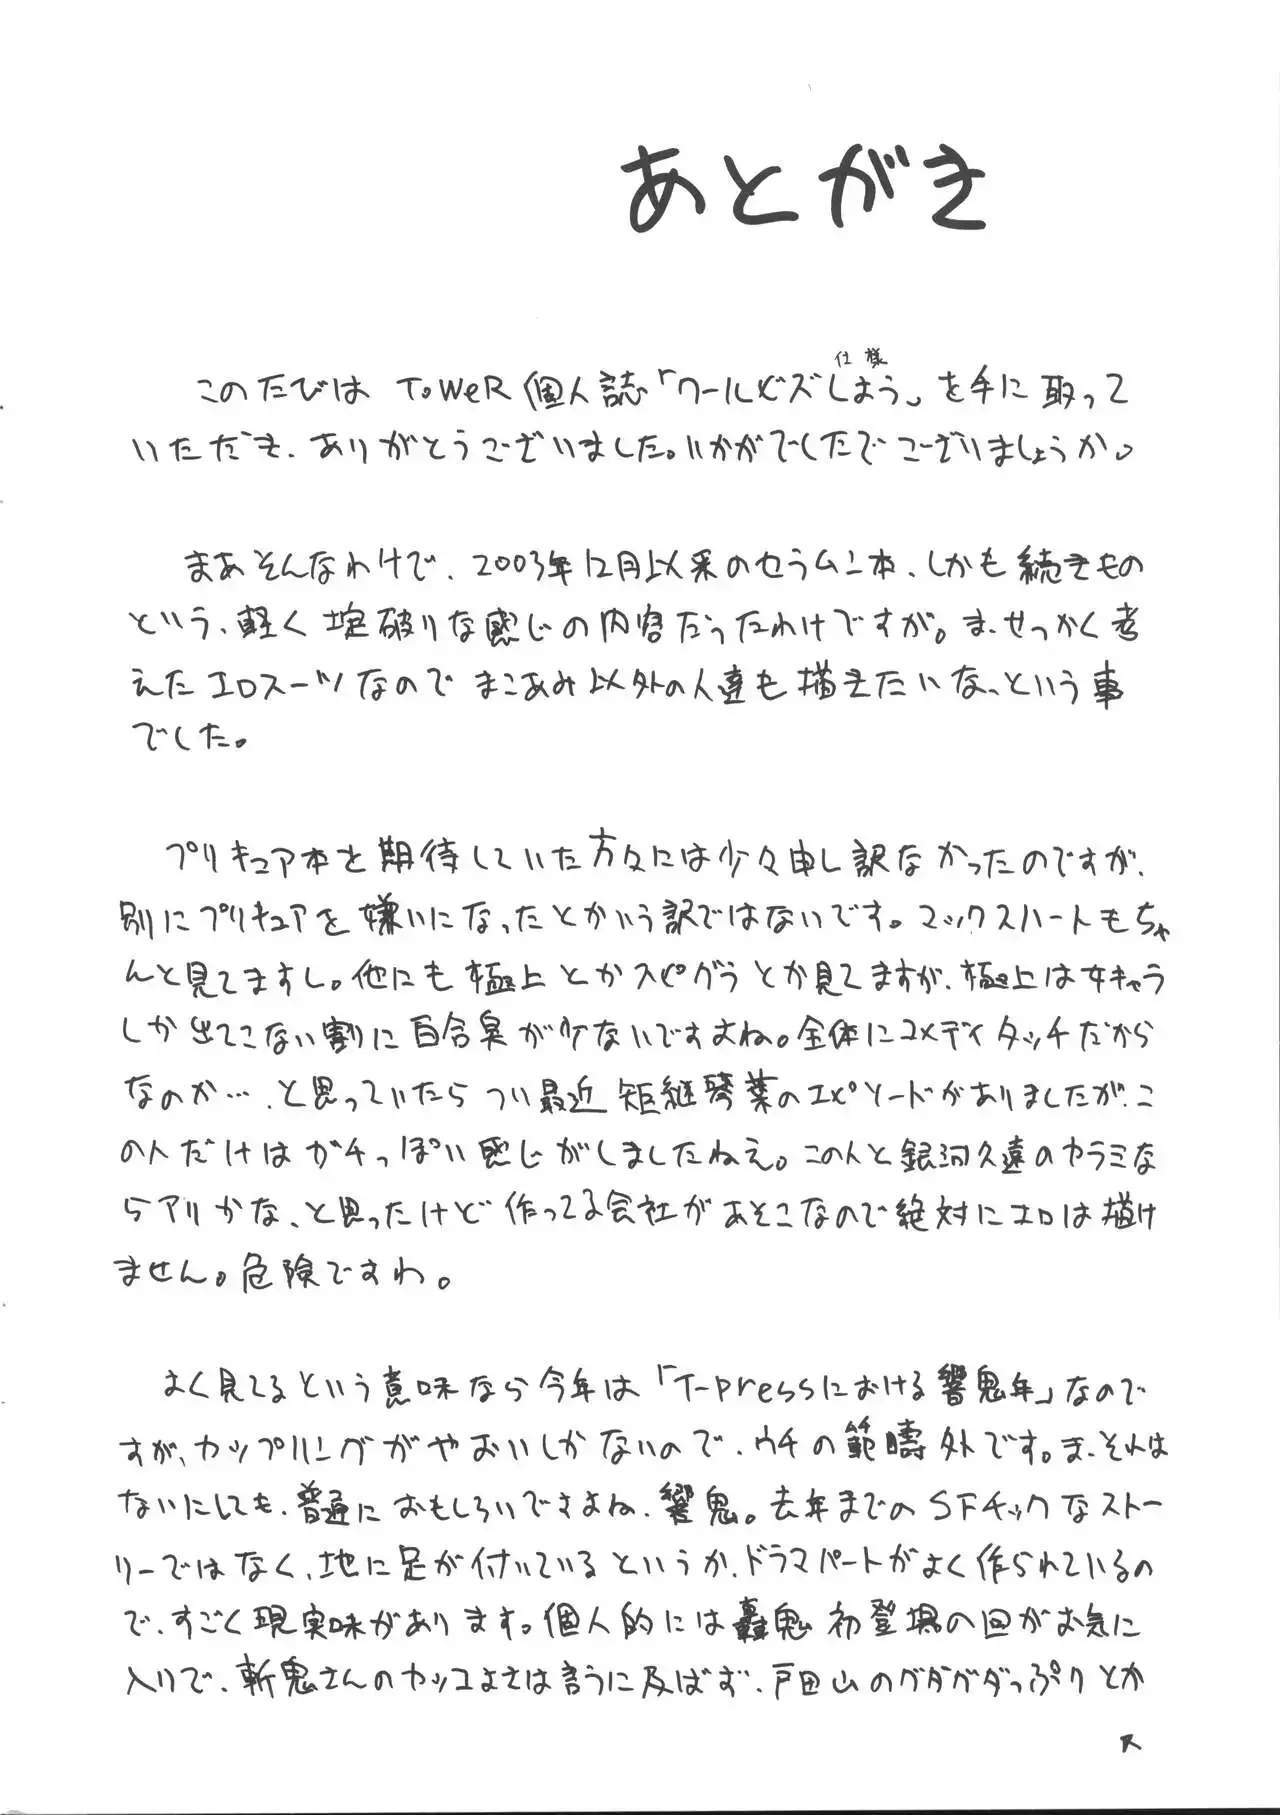 あとがき
仕様
このたびは ToWeR 個人誌「ワールドズしよう」を手に取って
いただき、ありがとうございました。いかがでしたでございましょうか。
まあそんなわけで、2003年12月以来のセラムン本、しかも続きもの
という、軽く掟破りな感じの内容だったわけですが。ま、せっかく考
えたエロスーツなので まこあみ以外の人達も描きたいな、という事
でした。
プリキュア本を期待していた方々には少々申し訳なかったのですが、
別にプリキュアを嫌いになったとかいう訳ではないです。マックスハートもちゃ
んと見てますし。他にも極上とかスピグラとか見てますが、極上は女キャラ
しか出てこない割に百合臭が少ないですよね。全体にコメディタッチだから
なのか…、と思っていたらつい最近矩継琴葉のエピソードがありましたが、こ
の人だけはガチっぽい感じがしましたねえ。この人と銀河久遠のカラミな
らアリかな、と思ったけど作ってる会社があそこなので絶対にエロは描け
ません。危険ですわ。
よく見てるという意味なら今年は「T-pressにおける響鬼年」なので
すが、カップリングがやおいしかないので、ウチの範疇外です。ま、それは
ないにしても、普通におもしろいですよね、響鬼。去年までのSFチックなストー
リーではなく、地に足が付いているというか、ドラマパートがよく作られているの
で、すごく現実味があります。個人的には轟鬼初登場の回がお気に
入りで、斬鬼さんのカッコよさは言うに及ばず、戸田山のグダグダっぷりとか